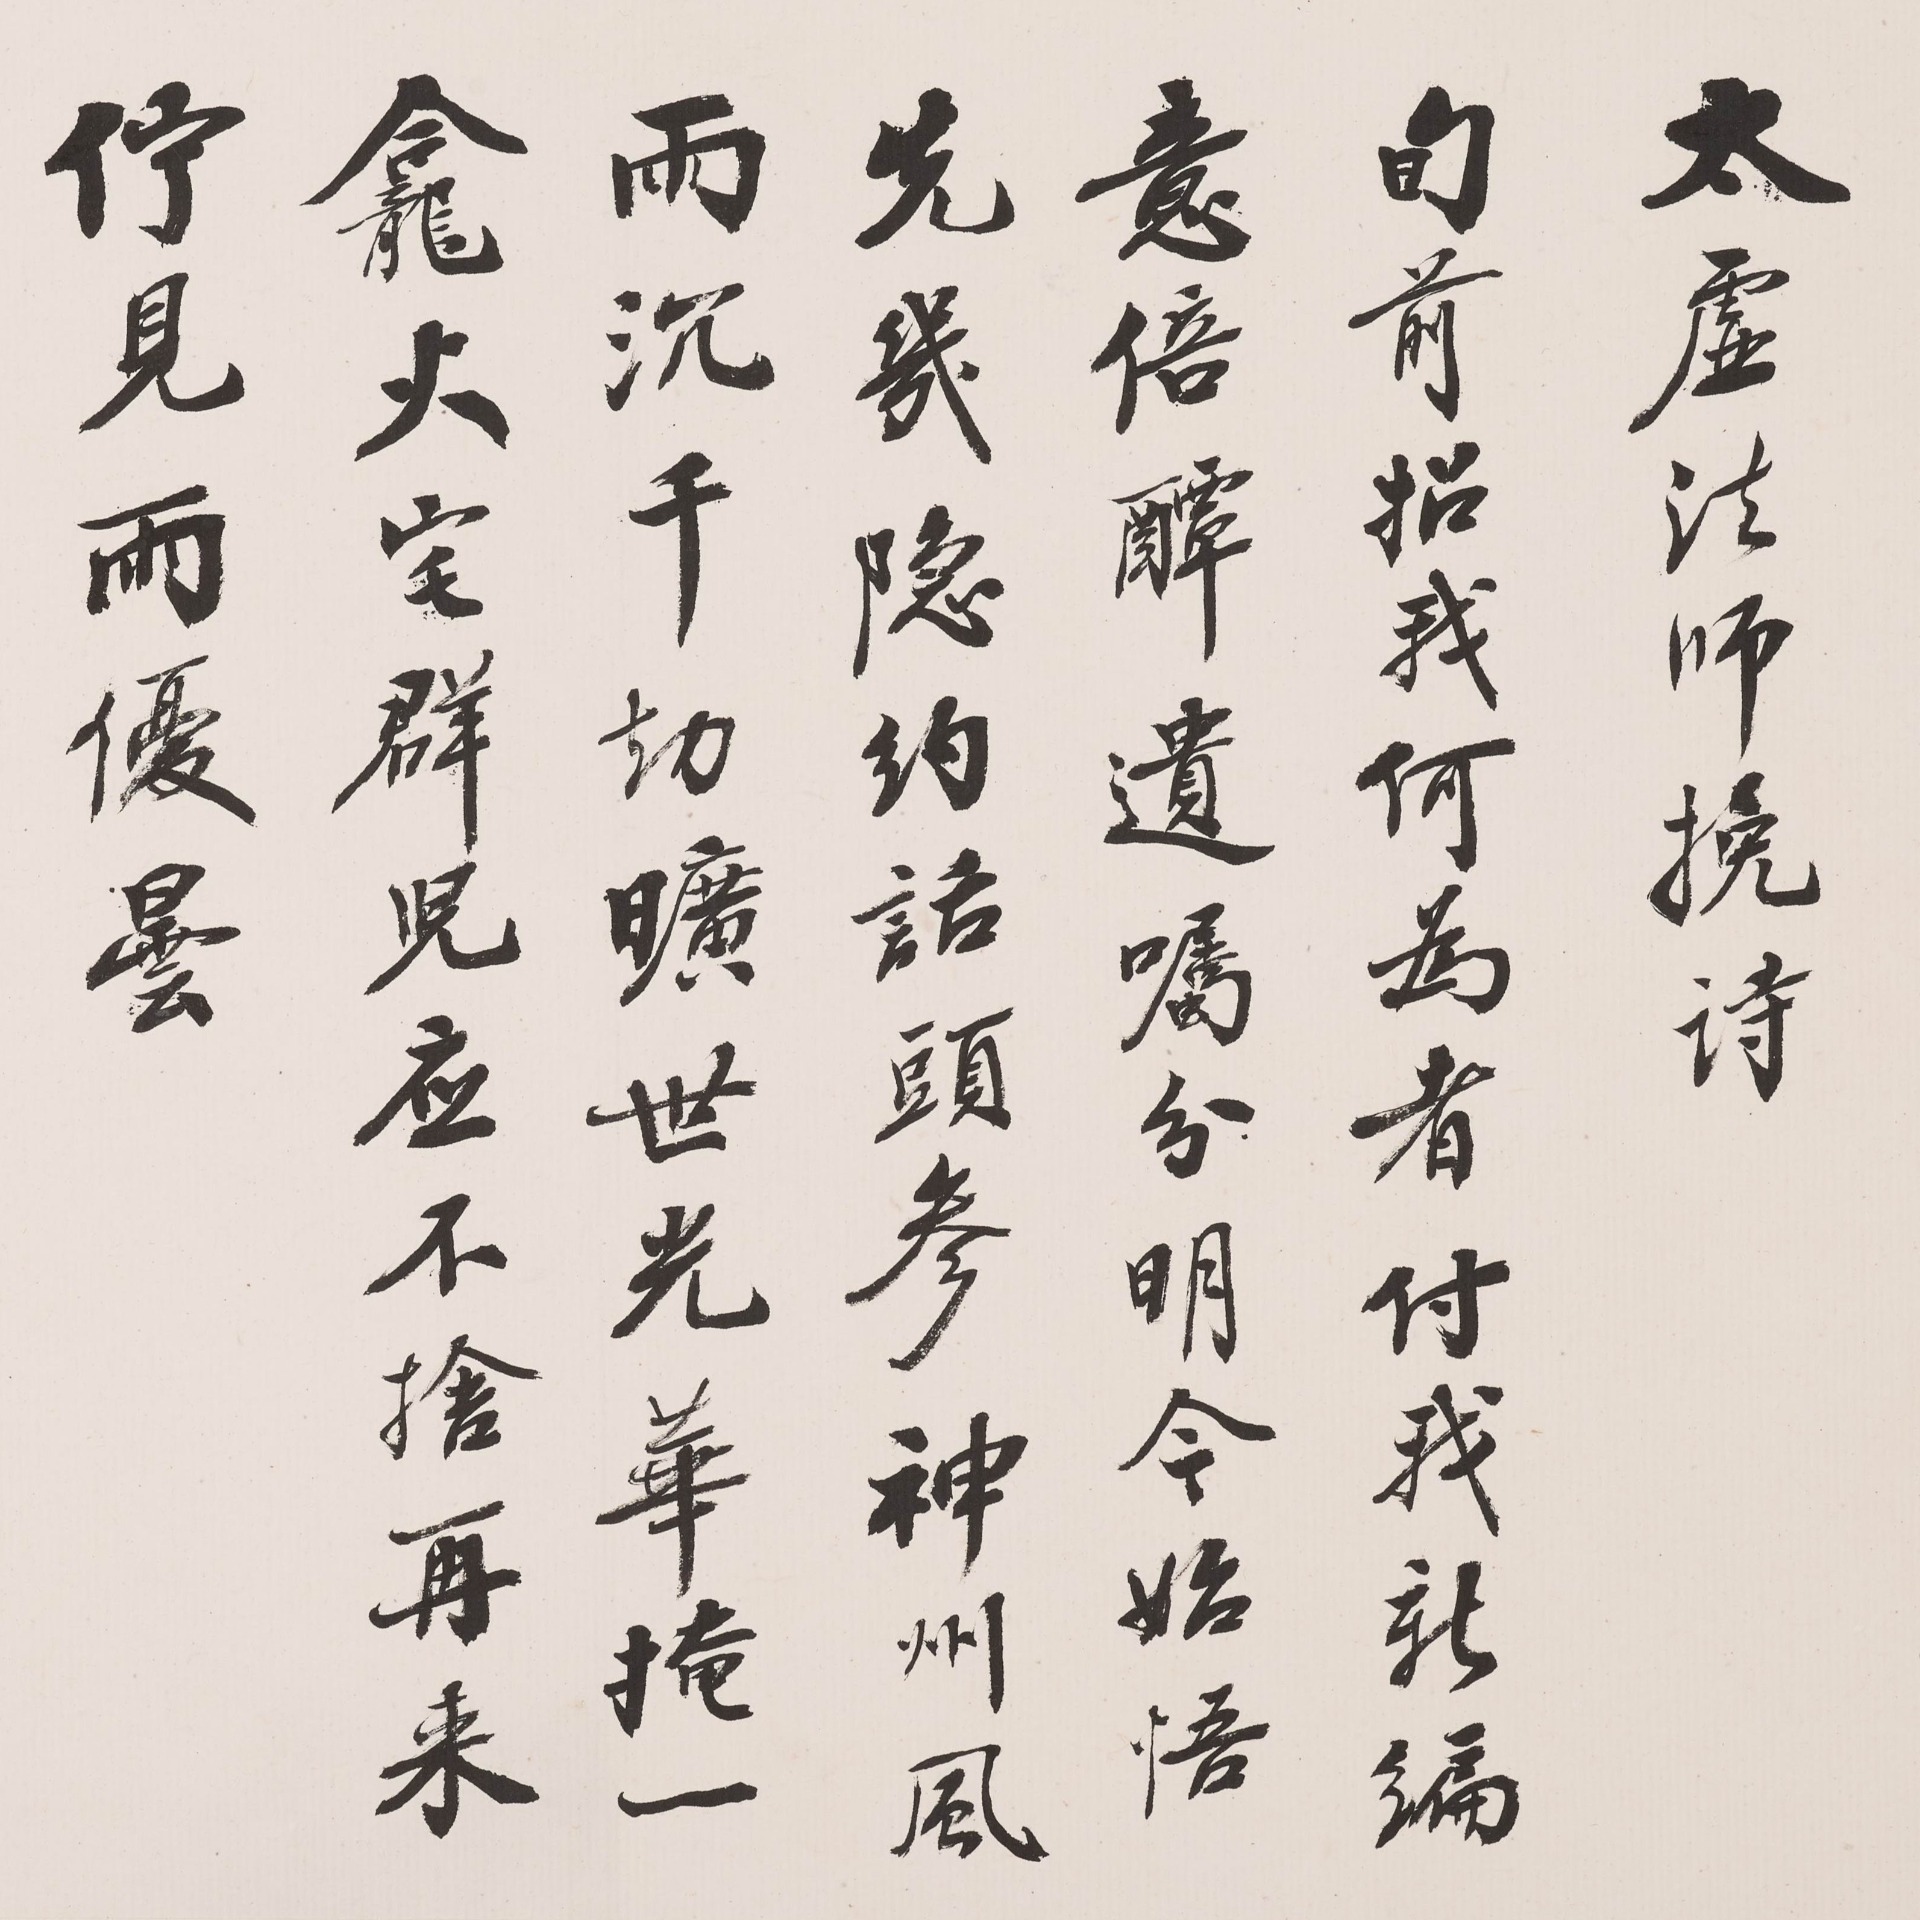 太虛法師挽诗
旬前招我何為者付我新編
意倍醰遺嘱分明今始悟
先幾隐約話頭參神州風
雨沉千劫曠世光華掩一
龕火宅群児应不捨再来
佇見雨優曇